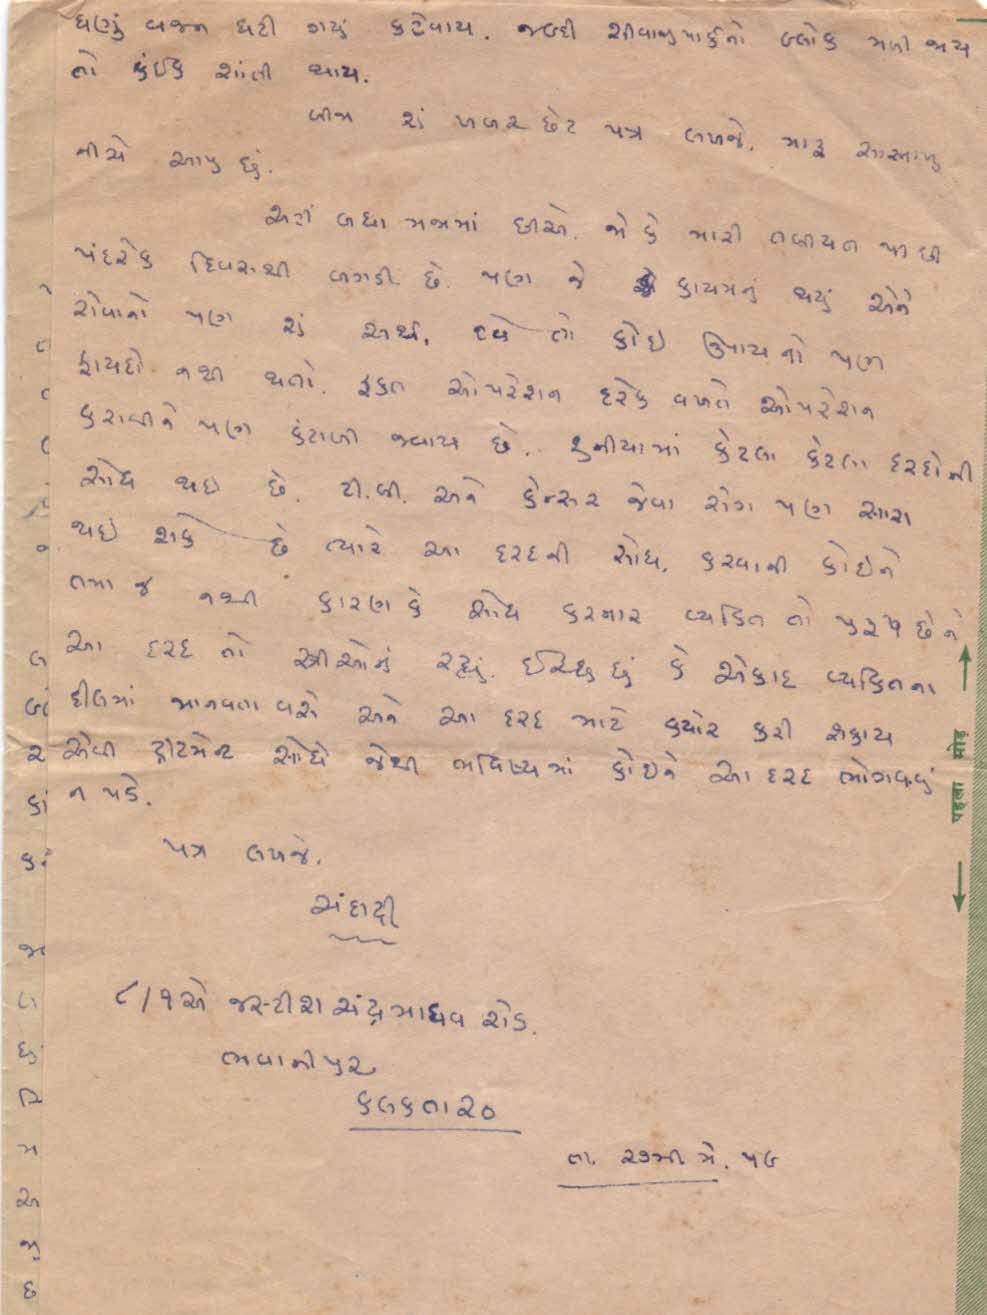 ઘણું વજન ઘટી ગયું કહેવાય. જલ્દી શીવાજીપાર્કનો બ્લોક મળી જાય
તો કંઈક શાંતી થાય.
બીજા શું ખબર છે પત્ર લખજે. મારૂ સરનામુ
નીચે આપુ છું.
અહીં બધા મજામાં છીએ. જો કે મારી તબીયત પાછી
પંદરેક દિવસથી બગડી છે. પણ જે કાયમનું થયું એને
રોવાનો પણ શું અર્થ. હવે તો કોઇ ઉપાયનો પણ
ફાયદો નથી થતો. ફક્ત ઓપરેશન દરેક વખતે ઓપરેશન
કરાવીને પણ કંટાળી જવાય છે. દુનીયામાં કેટલા કેટલા દરદોની
શોધ થઇ છે. ટી.બી. અને કેન્સર જેવા રોગ પણ સારા
થઇ શકે છે ત્યારે આ દરદની શોધ, કરવાની કોઇને
તમા જ નથી કારણ કે શોધ કરનાર વ્યક્તિ તો પુરૂષ છે ને
આ દરદ તો સ્ત્રીઓનું રહ્યું. ઈચ્છુ છું કે એકાદ વ્યક્તિના
દીલમાં માનવતા વસે અને આ દરદ માટે ક્યોર કરી શકાય
એવી ટ્રીટમેન્ટ શોધે જેથી ભવિષ્યમાં કોઇને આ દરદ ભોગવવું
ન પડે.
પત્ર લખજે.
૮/૧એ જસ્ટીશ ચંદ્ર માધવ રોડ.
ભવાનીપુર
કલકતા ૨૦
તા. ૨૭મી મે. ૫૮
पहला मोड़